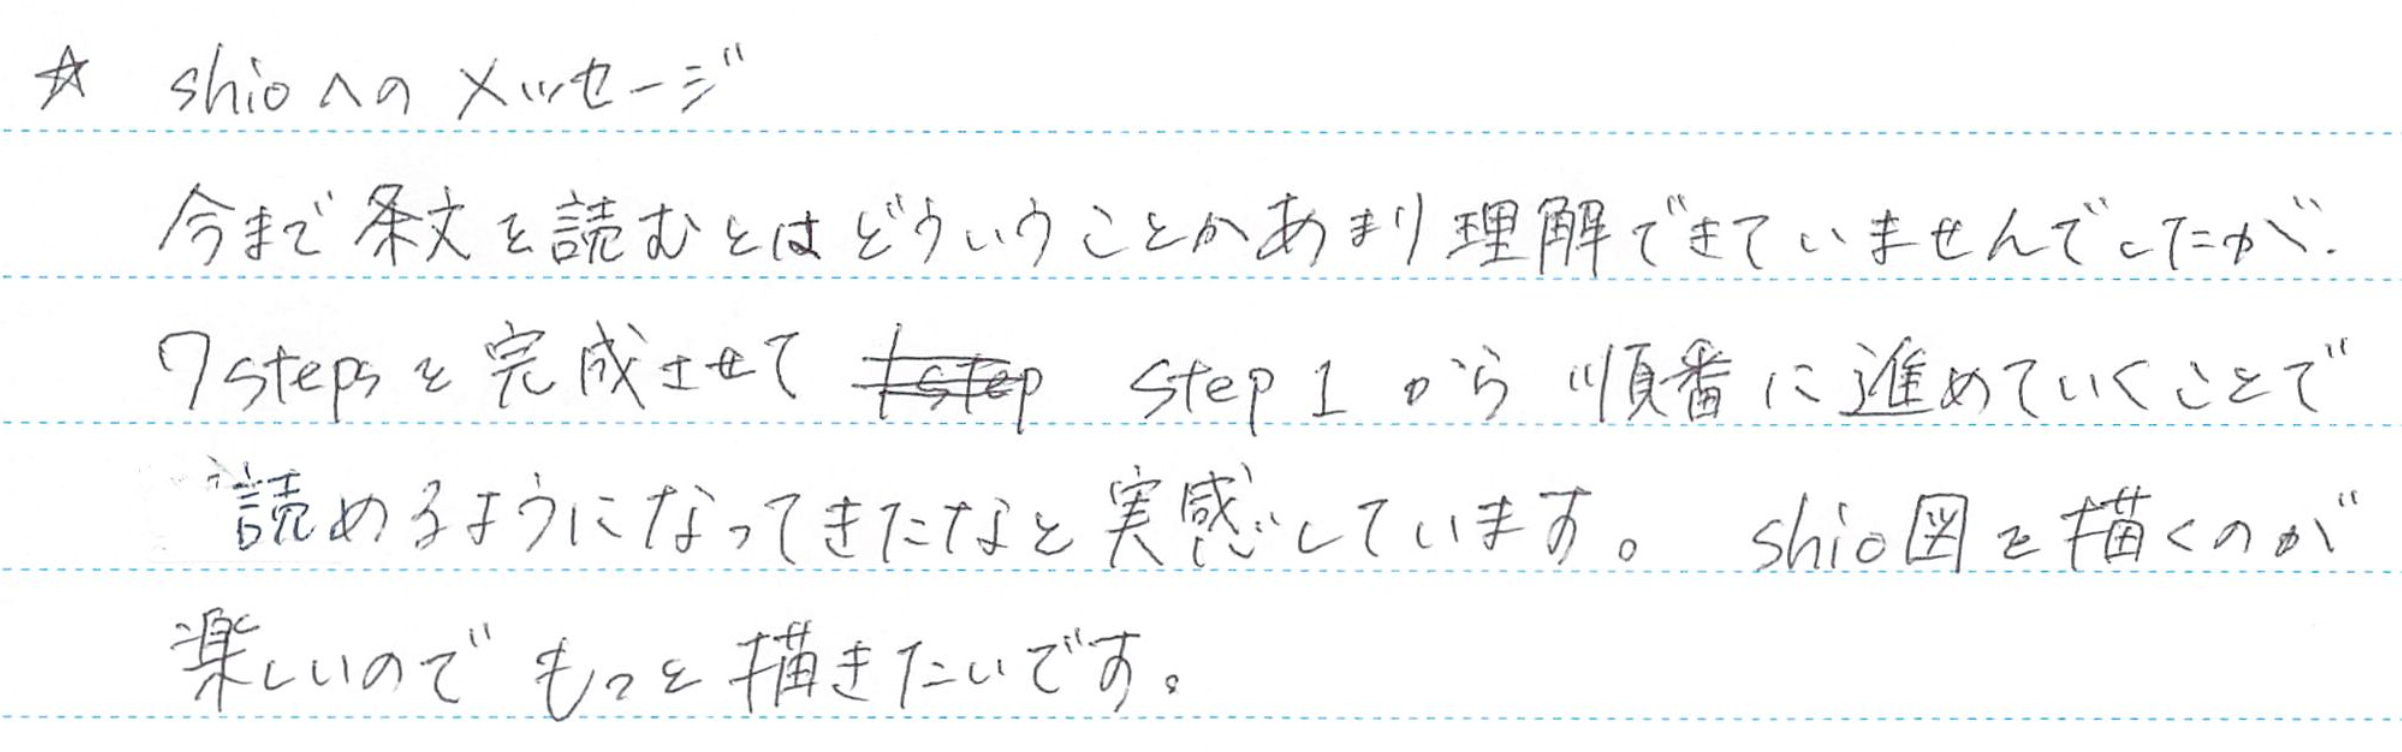 ☆ shioへのメッセージ
今まで条文を読むとはどういうことかあまり理解できていませんでしたが、
7stepsを完成させて step1から順番に進めていくことで
読めるようになってきたなと実感しています。 shio図を描くのが
楽しいのでもっと描きたいです。